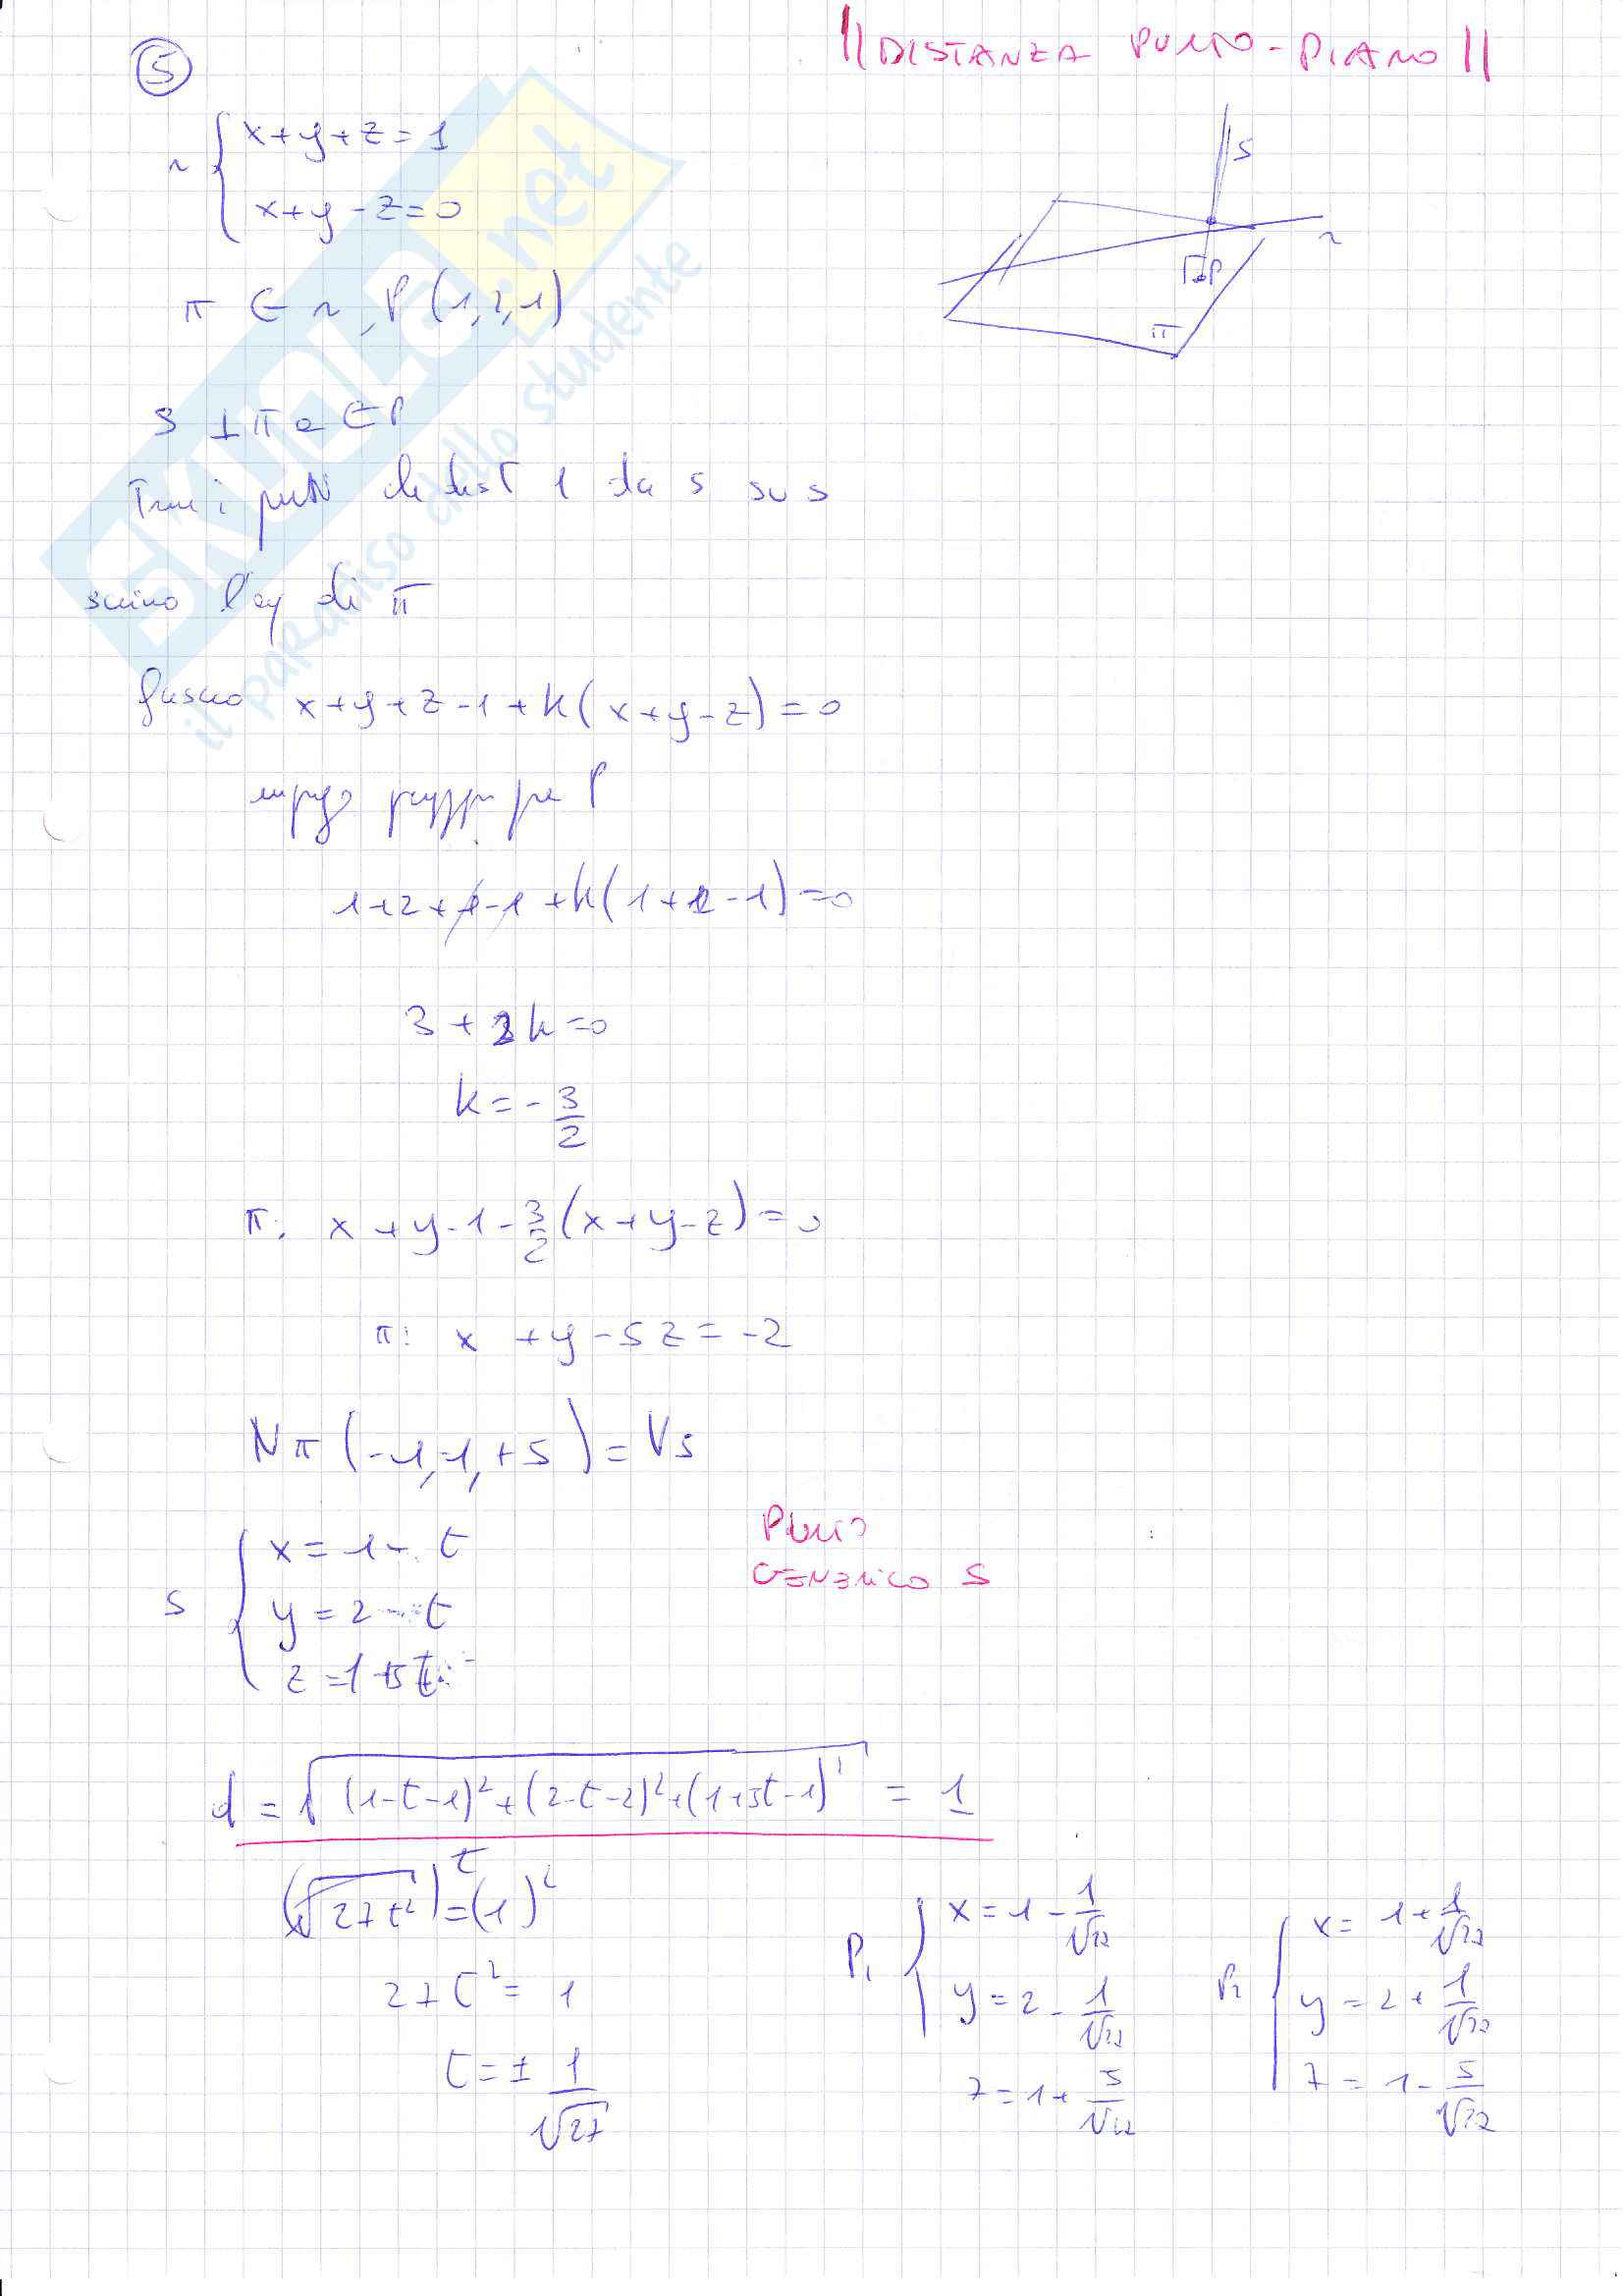 5
|| DISTANZA PUNTO-PIANO ||
r { x+y+z=1
x+y-z=0
π ∈ r, P(1,2,1)
S ⊥ π e ∈ P
di dist 1 da s su s
s
r
P
π
scrivo l'eq di π
fascio x+y+z-1+k(x+y-z)=0
passaggio per P
1+2+1-1+k(1+2-1)=0
3+2k=0
k=-3/2
π: x+y-1-3/2(x+y-z)=0
π: x+y-5z=-2
Nπ(-1,-1,+5)=Vs
s { x=1-t
y=2-t
z=1+5t
PUNTO
GENERICO S
d=√((1-t-1)²+(2-t-2)²+(1+5t-1)²)=1
(√27t²)²=(1)²
27t²=1
t=±1/√27
P₁ { x=1-1/√27
y=2-1/√27
z=1+5/√27
P₂ { x=1+1/√27
y=2+1/√27
z=1-5/√27
SKUOLA.net
il paradiso dello studente